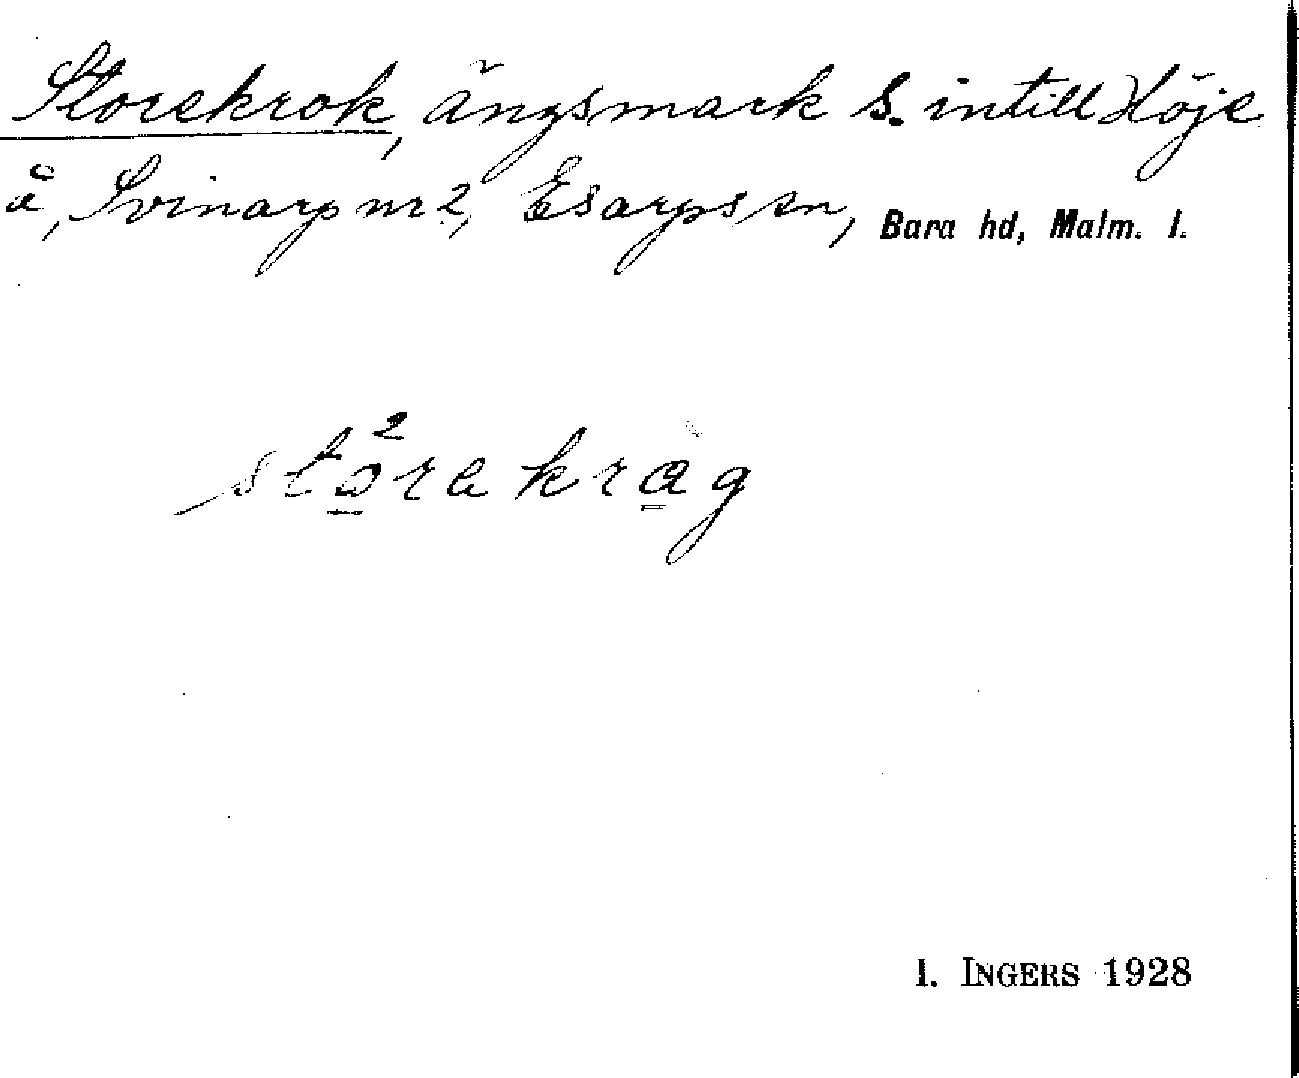 Storekrok, ängsmark S. intill Höje
å, Svinarp nr 2, Esarps sn, Bara hd, Malm. l.
sto²rakrag
I. INGERS 1928